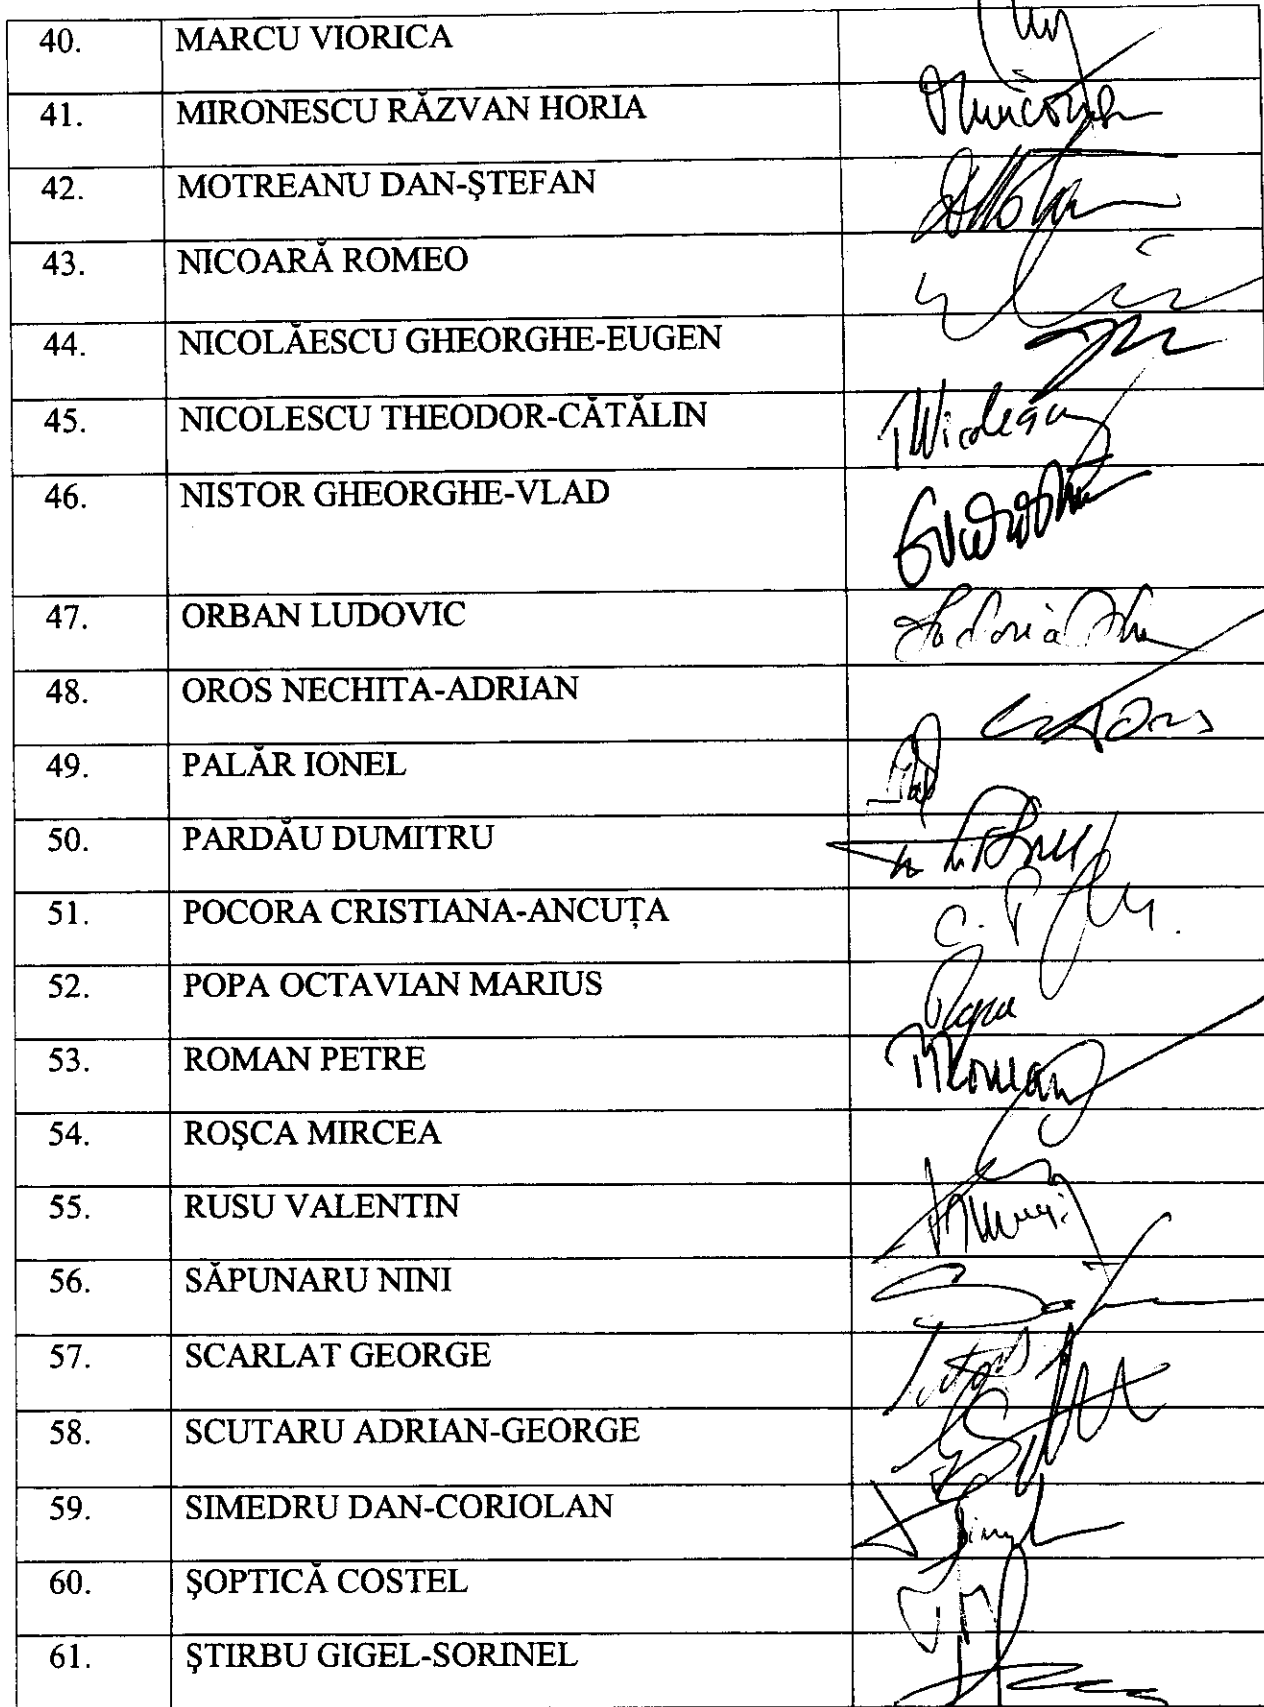 40. MARCU VIORICA
41. MIRONESCU RĂZVAN HORIA
42. MOTREANU DAN-ŞTEFAN
43. NICOARĂ ROMEO
44. NICOLĂESCU GHEORGHE-EUGEN
45. NICOLESCU THEODOR-CĂTĂLIN
46. NISTOR GHEORGHE-VLAD
47. ORBAN LUDOVIC
48. OROS NECHITA-ADRIAN
49. PALĂR IONEL
50. PARDĂU DUMITRU
51. POCORA CRISTIANA-ANCUȚA
52. POPA OCTAVIAN MARIUS
53. ROMAN PETRE
54. ROŞCA MIRCEA
55. RUSU VALENTIN
56. SĂPUNARU NINI
57. SCARLAT GEORGE
58. SCUTARU ADRIAN-GEORGE
59. SIMEDRU DAN-CORIOLAN
60. ŞOPTICĂ COSTEL
61. ŞTIRBU GIGEL-SORINEL